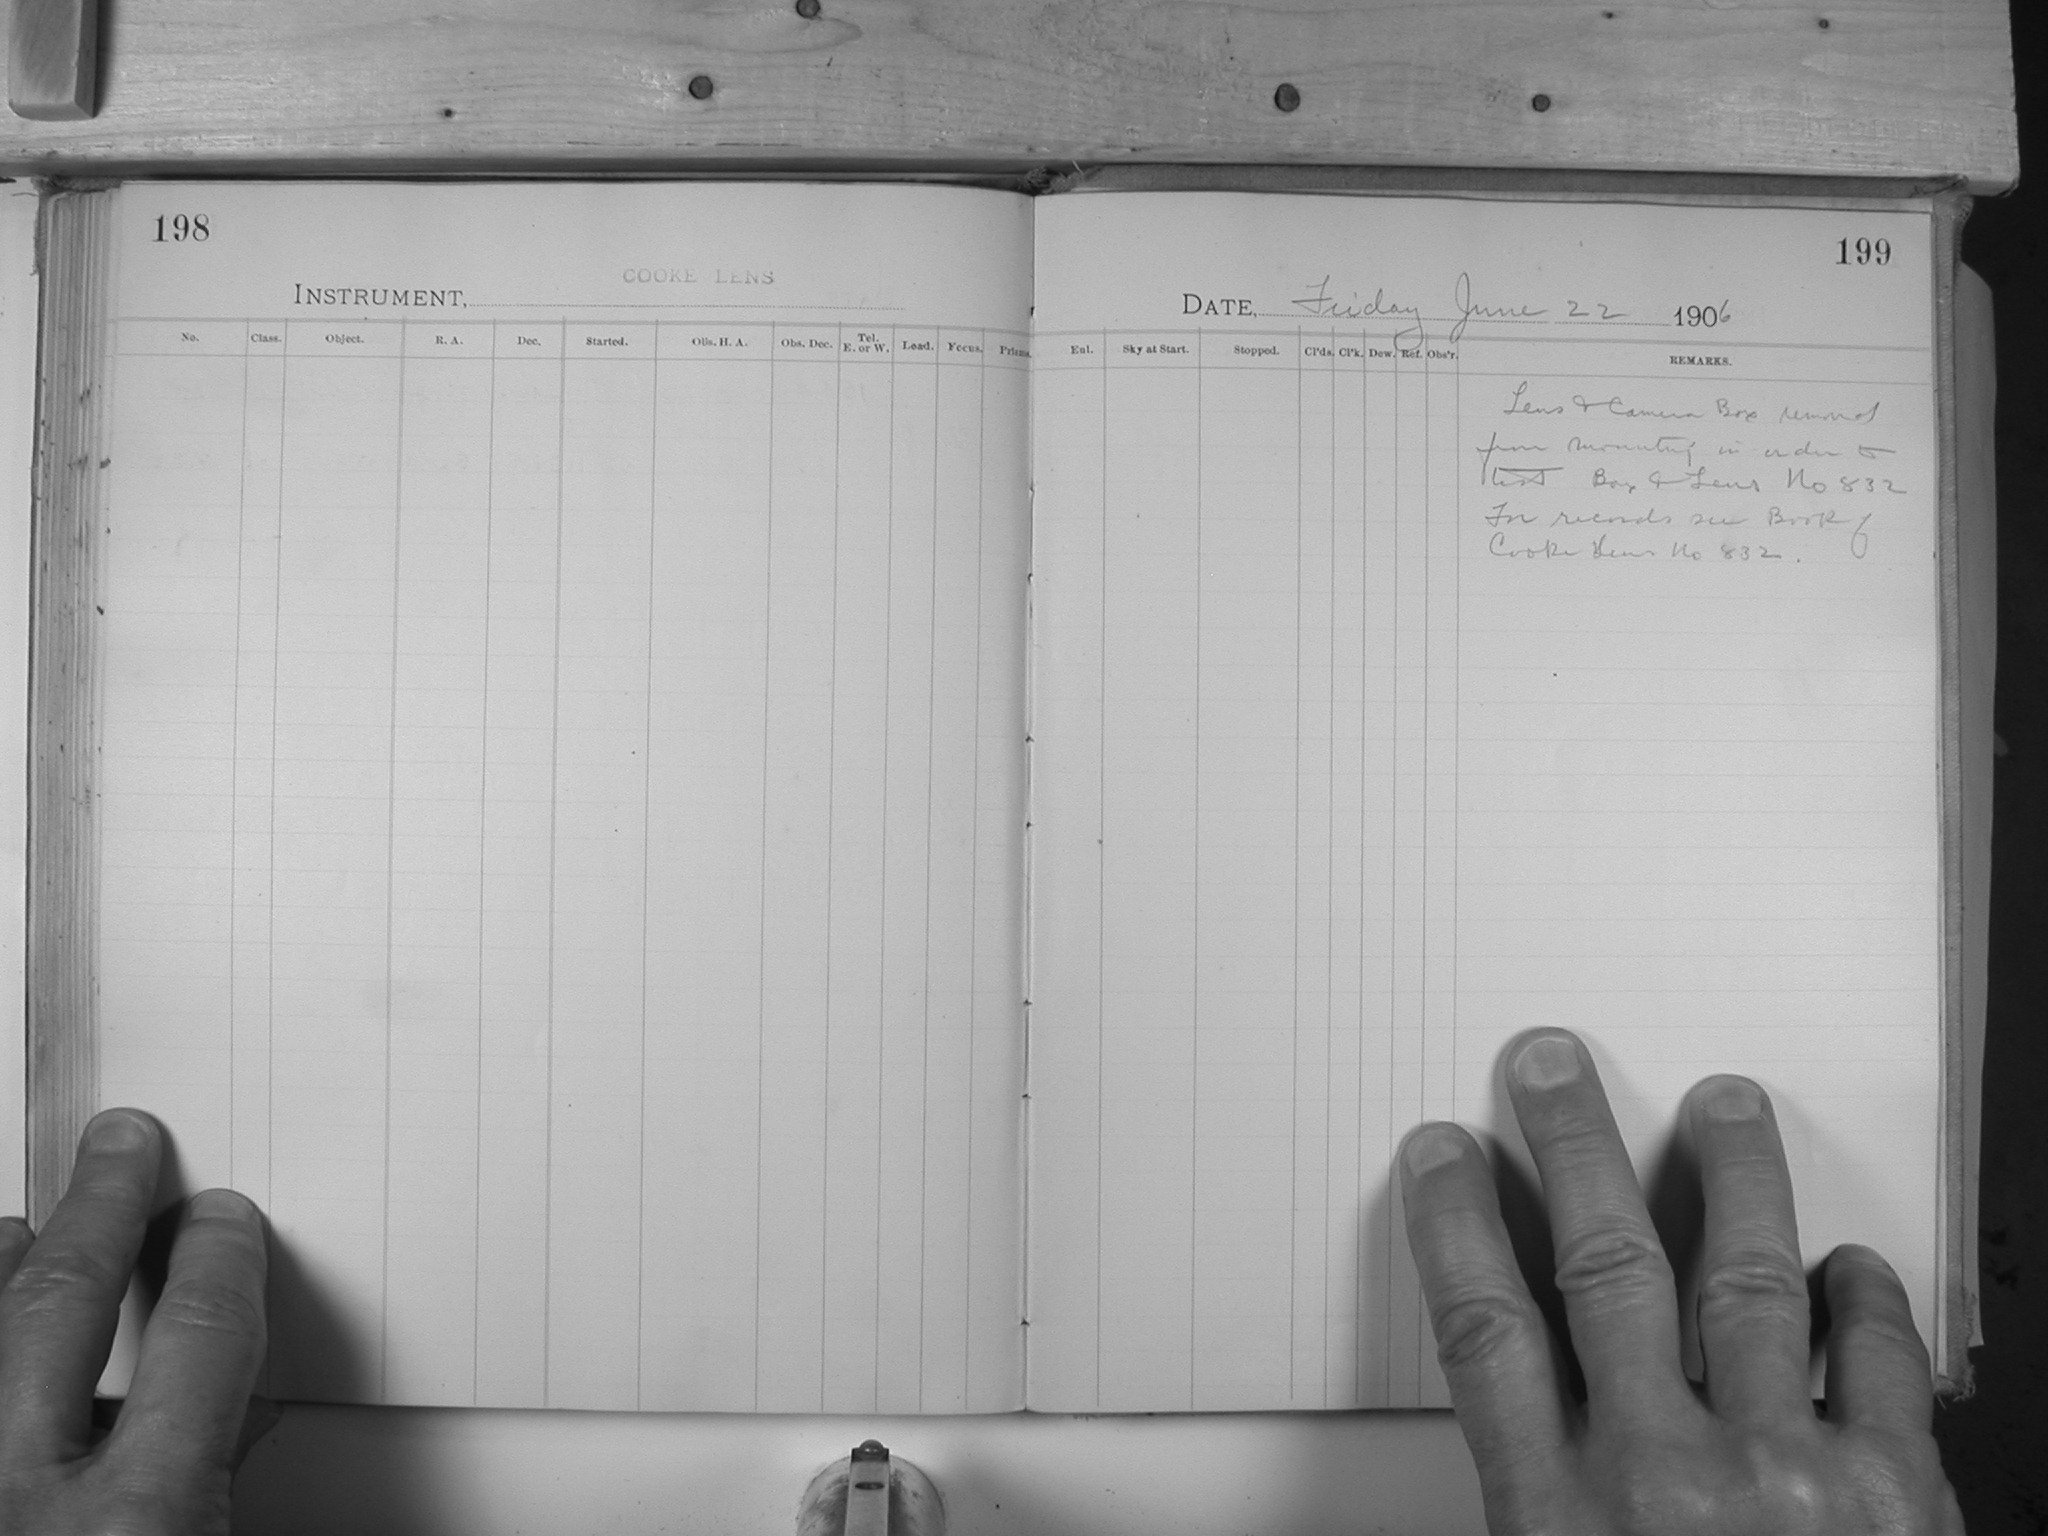 198
COOKE LENS
INSTRUMENT,
No. Class. Object. R. A. Dec. Started. Obs. H. A. Obs. Dec. Tel. E. or W. Lead. Focus. Prisms.
199
DATE, Friday June 22 1906
Eul. Sky at Start. Stopped. Cl'ds. Cl'k. Dew. Ref. Obs'r. REMARKS.
Lens & Camera Box removed
from mounting in order to
test Box & Lens No 832
For records see Book of
Cooke Lens No 832.